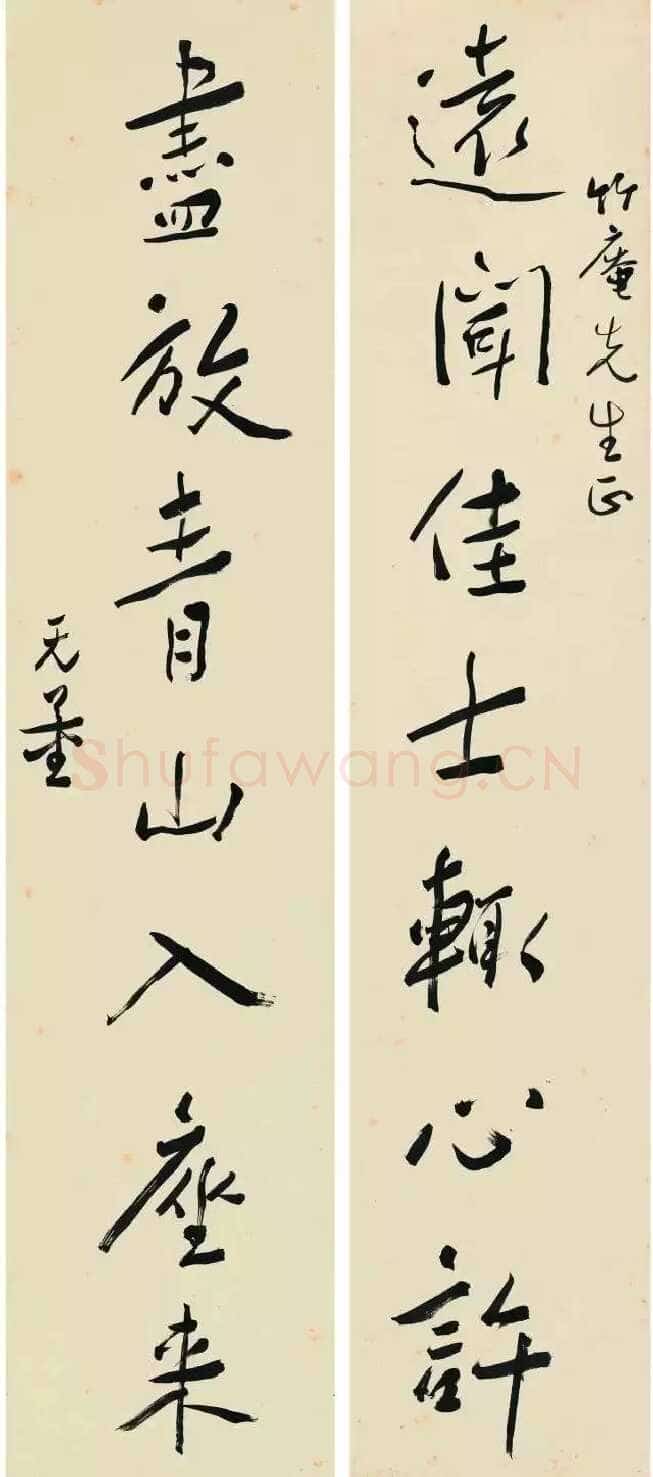 竹庵先生正
遠聞佳士輒心許
盡放青山入座来
无量
Shufawang.CN